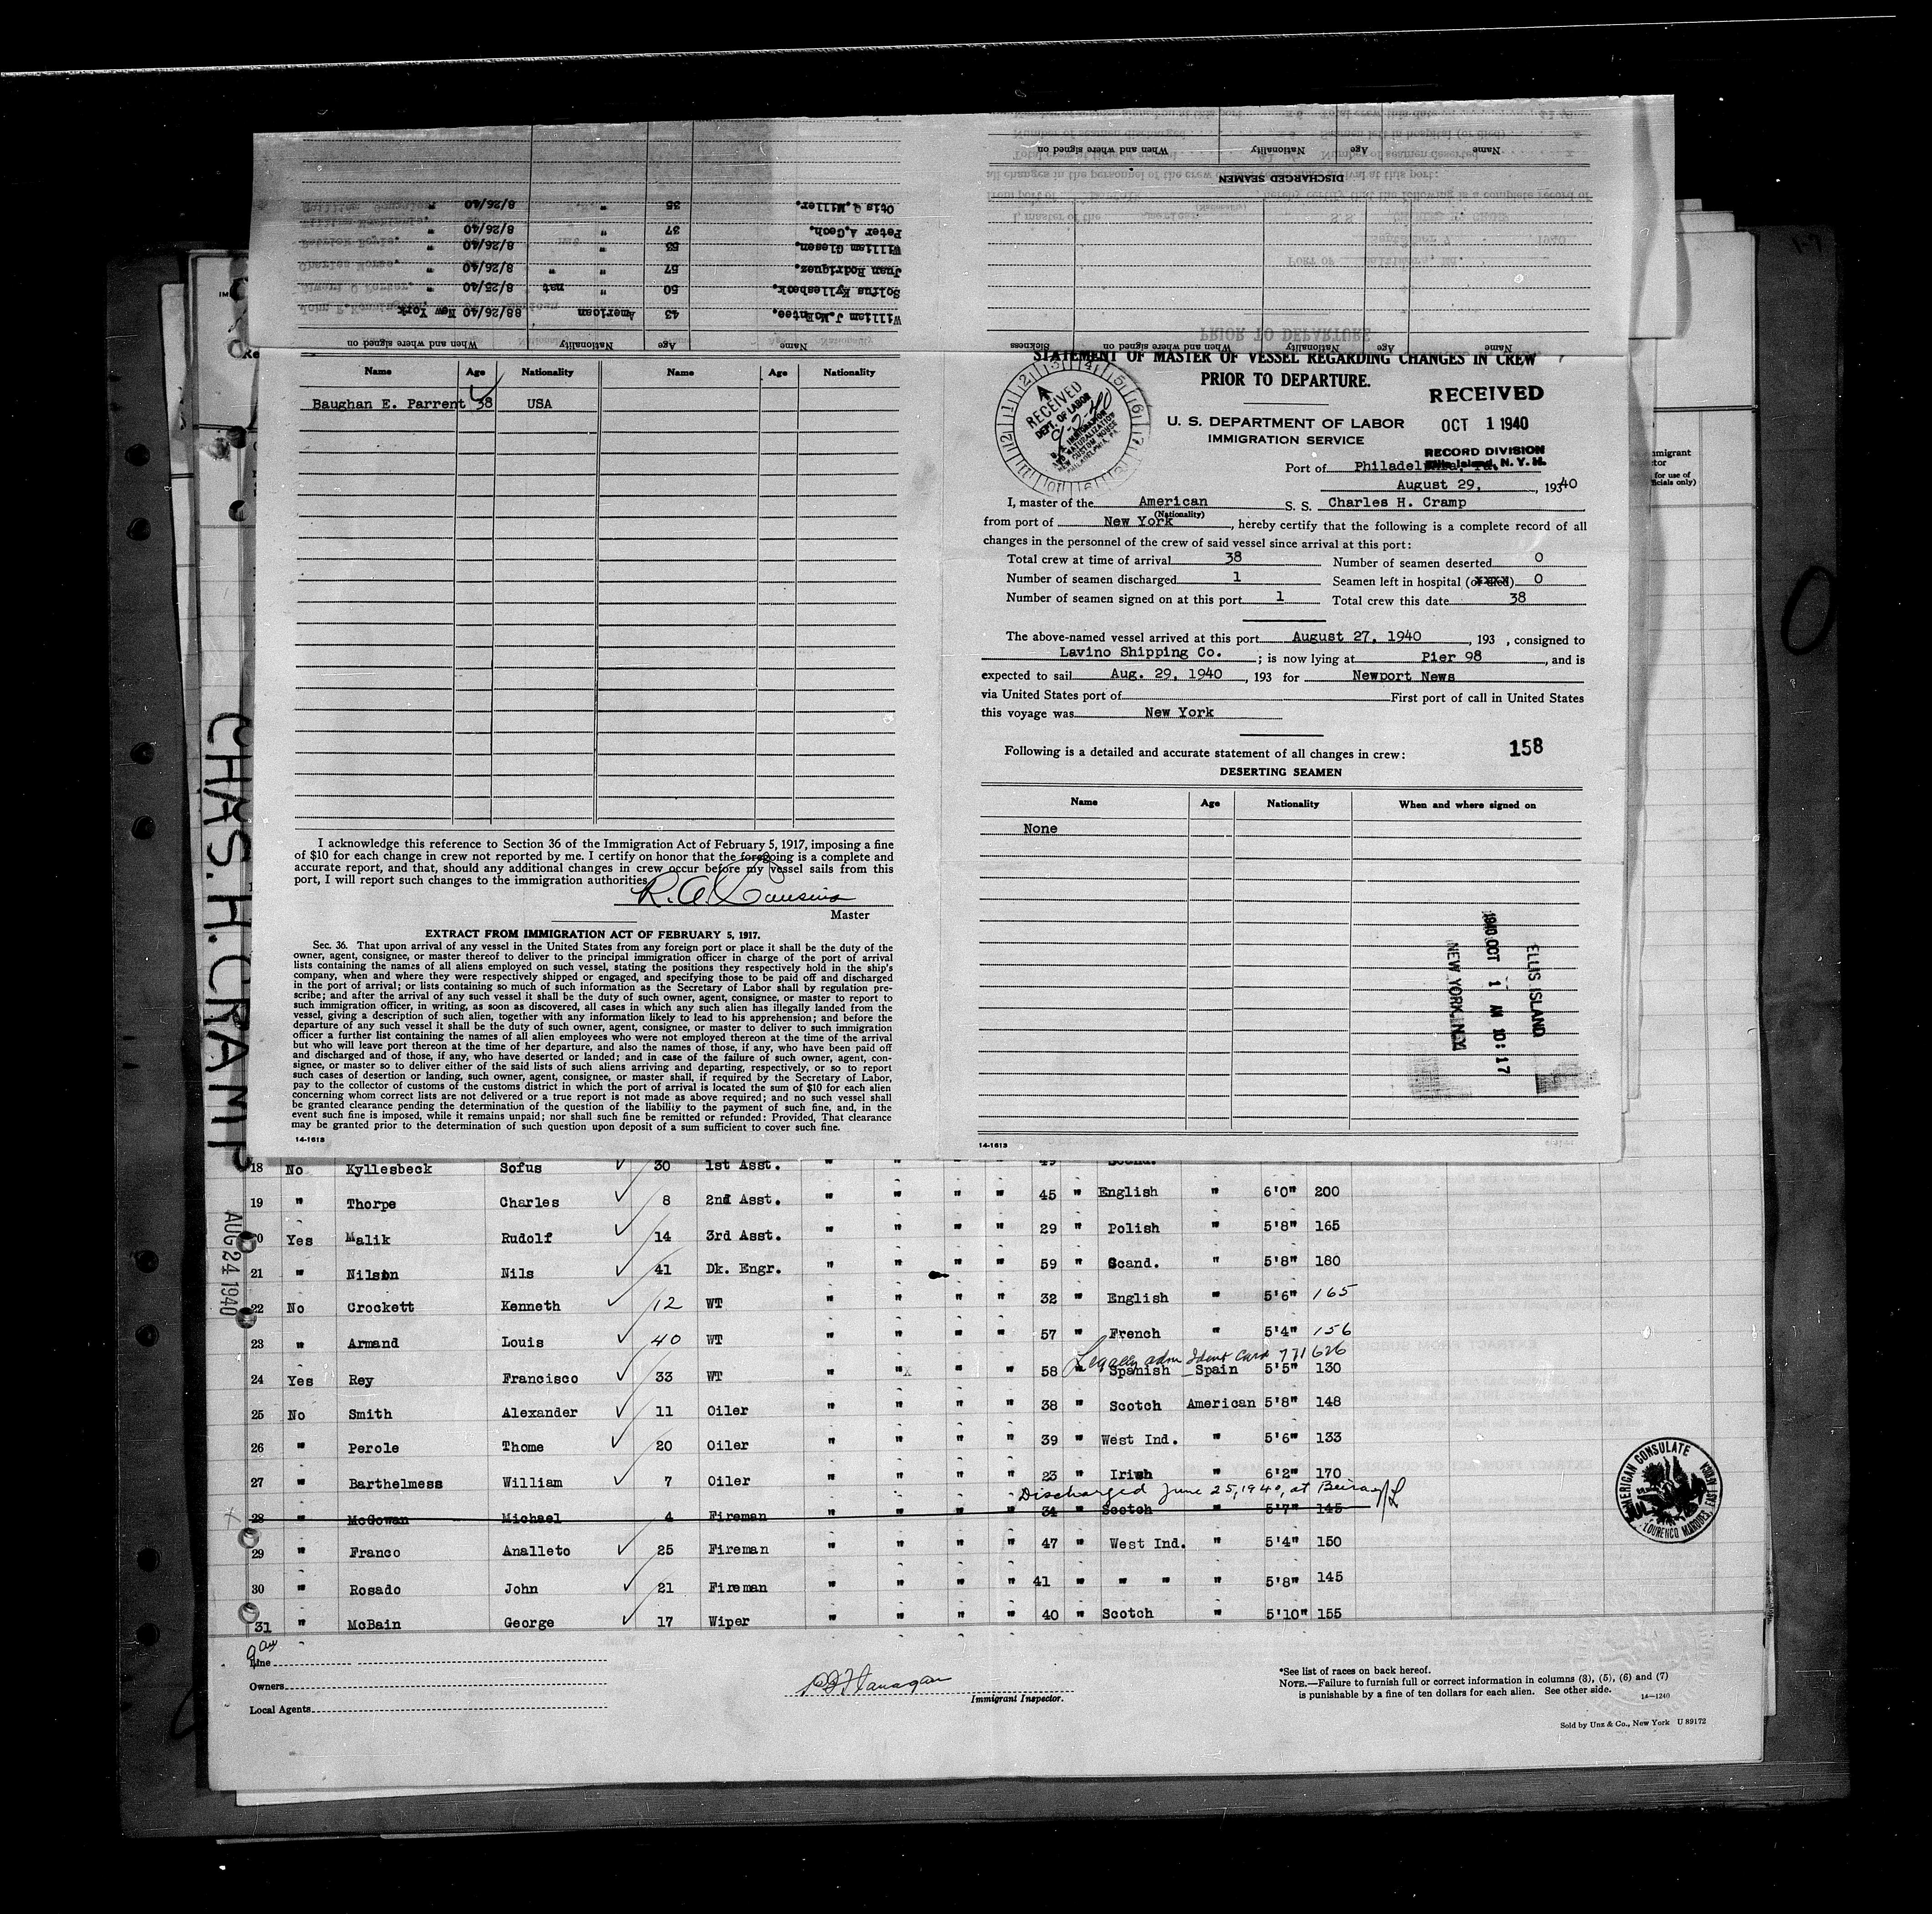 Otis Q. Miller. 35 " 8/26/40
Peter A. Cech. 37 " 8/26/40
William Glesen. 53 " 8/26/40
Juan Rodriquez. 57 " " 8/26/40
Sofus Kyllesbeck. 50 " nat 8/25/40
William J. McEntee. 43 American 88/26/40 New York
Name Age Nationality When and where signed on
DISCHARGED SEAMEN
Name Age Nationality When and where signed on
Name Age Nationality When and where signed on Sickness
Name Age Nationality Name Age Nationality
Baughan E. Parrent 38 USA
I acknowledge this reference to Section 36 of the Immigration Act of February 5, 1917, imposing a fine
of $10 for each change in crew not reported by me. I certify on honor that the foregoing is a complete and
accurate report, and that, should any additional changes in crew occur before my vessel sails from this
port, I will report such changes to the immigration authorities
Master
EXTRACT FROM IMMIGRATION ACT OF FEBRUARY 5, 1917.
Sec. 36. That upon arrival of any vessel in the United States from any foreign port or place it shall be the duty of the
owner, agent, consignee, or master thereof to deliver to the principal immigration officer in charge of the port of arrival
lists containing the names of all aliens employed on such vessel, stating the positions they respectively hold in the ship's
company, when and where they were respectively shipped or engaged, and specifying those to be paid off and discharged
in the port of arrival; or lists containing so much of such information as the Secretary of Labor shall by regulation pre-
scribe; and after the arrival of any such vessel it shall be the duty of such owner, agent, consignee, or master to report to
such immigration officer, in writing, as soon as discovered, all cases in which any such alien has illegally landed from the
vessel, giving a description of such alien, together with any information likely to lead to his apprehension; and before the
departure of any such vessel it shall be the duty of such owner, agent, consignee, or master to deliver to such immigration
officer a further list containing the names of all alien employees who were not employed thereon at the time of the arrival
but who will leave port thereon at the time of her departure, and also the names of those, if any, who have been paid off
and discharged and of those, if any, who have deserted or landed; and in case of the failure of such owner, agent, con-
signee, or master so to deliver either of the said lists of such aliens arriving and departing, respectively, or so to report
such cases of desertion or landing, such owner, agent, consignee, or master shall, if required by the Secretary of Labor,
pay to the collector of customs of the customs district in which the port of arrival is located the sum of $10 for each alien
concerning whom correct lists are not delivered or a true report is not made as above required; and no such vessel shall
be granted clearance pending the determination of the question of the liability to the payment of such fine, and, in the
event such fine is imposed, while it remains unpaid; nor shall such fine be remitted or refunded: Provided, That clearance
may be granted prior to the determination of such question upon deposit of a sum sufficient to cover such fine.
14-1613
STATEMENT OF MASTER OF VESSEL REGARDING CHANGES IN CREW
PRIOR TO DEPARTURE.
RECEIVED
DEPT. OF LABOR
PHILADELPHIA, PA.
RECEIVED
OCT 1 1940
RECORD DIVISION
Ellis Island, N. Y. H.
U. S. DEPARTMENT OF LABOR
IMMIGRATION SERVICE
Port of Philadelphia, Pa.
August 29, 19340
I, master of the American S. S. Charles H. Cramp
(Nationality)
from port of New York, hereby certify that the following is a complete record of all
changes in the personnel of the crew of said vessel since arrival at this port:
Total crew at time of arrival 38 Number of seamen deserted 0
Number of seamen discharged 1 Seamen left in hospital (or died) 0
Number of seamen signed on at this port 1 Total crew this date 38
The above-named vessel arrived at this port August 27, 1940, 193 , consigned to
Lavino Shipping Co. ; is now lying at Pier 98, and is
expected to sail Aug. 29, 1940, 193 for Newport News
via United States port of First port of call in United States
this voyage was New York
Following is a detailed and accurate statement of all changes in crew: 158
DESERTING SEAMEN
Name Age Nationality When and where signed on
None
ELLIS ISLAND
1940 OCT 1 AM 10:17
NEW YORK, N.Y.
14-1613
CHAS. H. CRAMP
AUG 24 1940
18 No Kyllesbeck Sofus 30 1st Asst. " " " " 49 " Scand.
19 " Thorpe Charles 8 2nd Asst. " " " " 45 " English " 6'0" 200
20 Yes Malik Rudolf 14 3rd Asst. " " " " 29 " Polish " 5'8" 165
21 " Nilson Nils 41 Dk. Engr. " " " " 59 " Scand. " 5'8" 180
22 No Crockett Kenneth 12 WT " " " " 32 " English " 5'6" 165
23 " Armand Louis 40 WT " " " " 57 " French " 5'4" 156
Legally adm Ident Card 771626
24 Yes Rey Francisco 33 WT " " " " 58 " Spanish Spain 5'5" 130
25 No Smith Alexander 11 Oiler " " " " 38 " Scotch American 5'8" 148
26 " Perole Thome 20 Oiler " " " " 39 " West Ind. " 5'6" 133
27 " Barthelmess William 7 Oiler " " " " 23 " Irish " 6'2" 170
Discharged June 25, 1940, at Beira
28 " McGowan Michael 4 Fireman " " " " 34 " Scotch " 5'7" 145
29 " Franco Analleto 25 Fireman " " " " 47 " West Ind. " 5'4" 150
30 " Rosado John 21 Fireman " " " " 41 " " " " 5'8" 145
31 " McBain George 17 Wiper " " " " 40 " Scotch " 5'10" 155
AMERICAN CONSULATE
LOURENCO MARQUES, EAST AFRICA
Line
Owners
Local Agents
Immigrant Inspector.
*See list of races on back hereof.
NOTE.—Failure to furnish full or correct information in columns (3), (5), (6) and (7)
is punishable by a fine of ten dollars for each alien. See other side. 14—1240
Sold by Unz & Co., New York U 89172